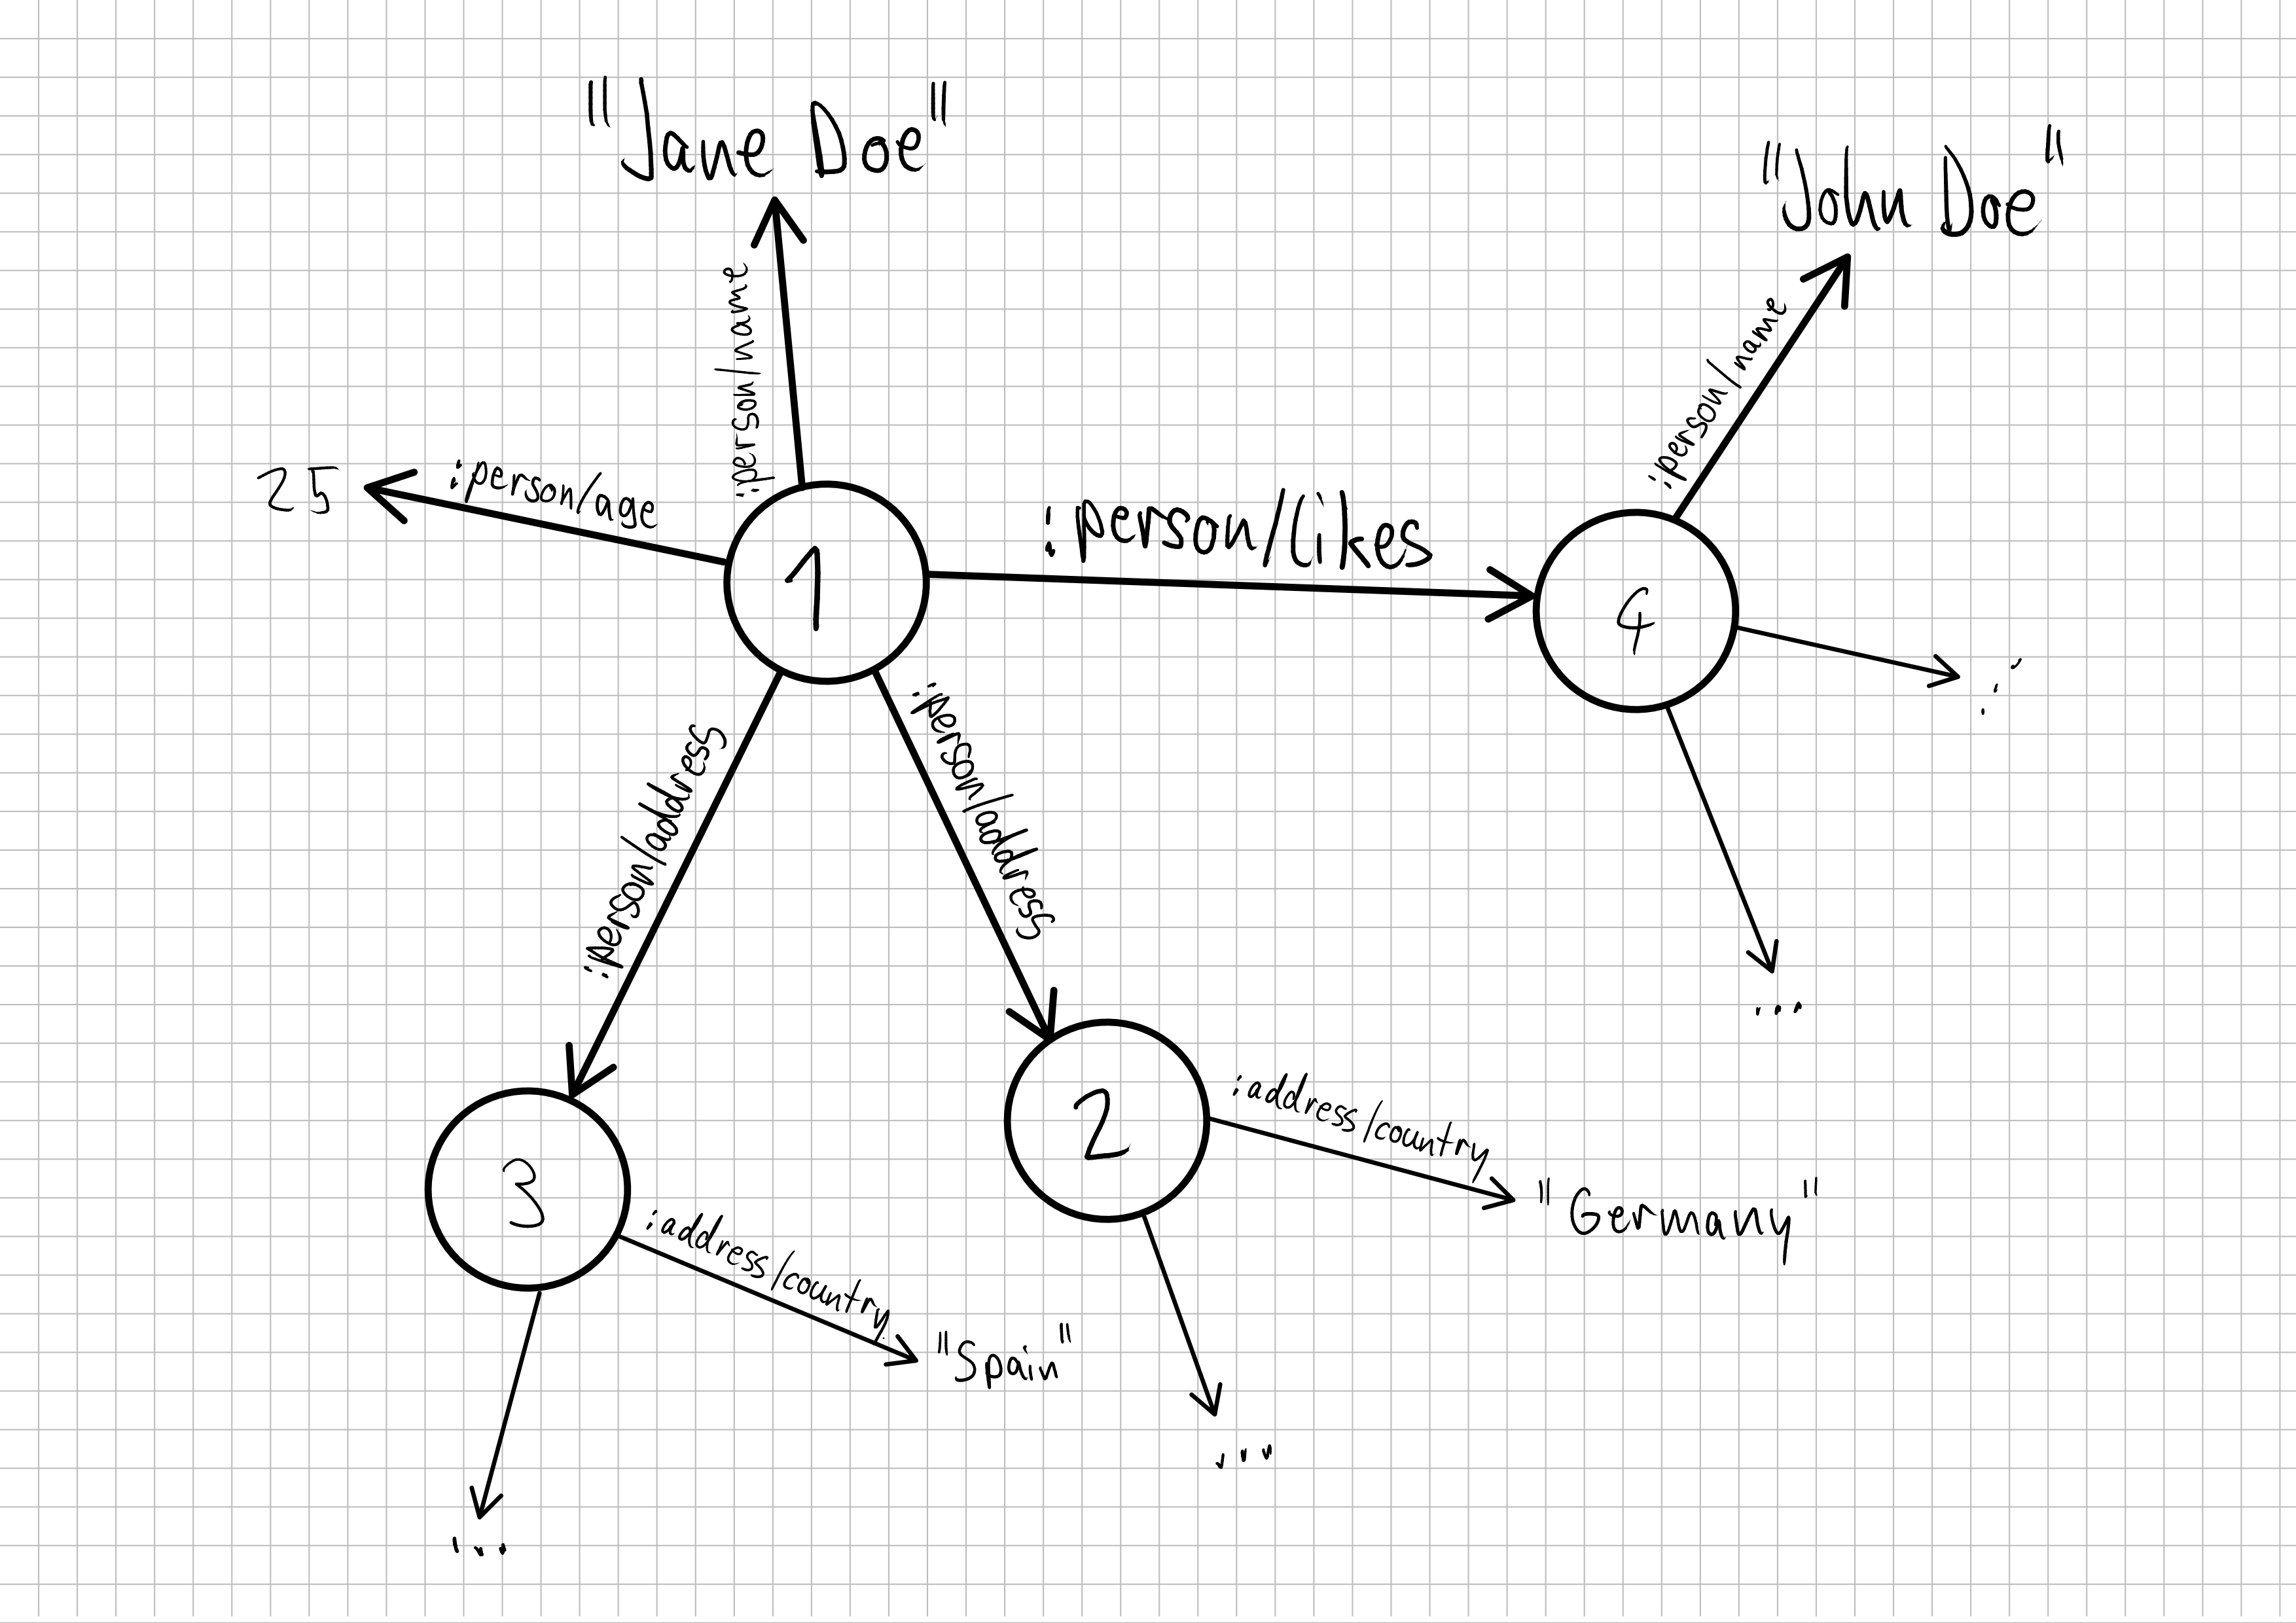 "Jane Doe"
"John Doe"
:person/name
:person/name
25
:person/age
:person/likes
1
4
...
:person/address
:person/address
...
2
:address/country
"Germany"
3
:address/country
"Spain"
...
...